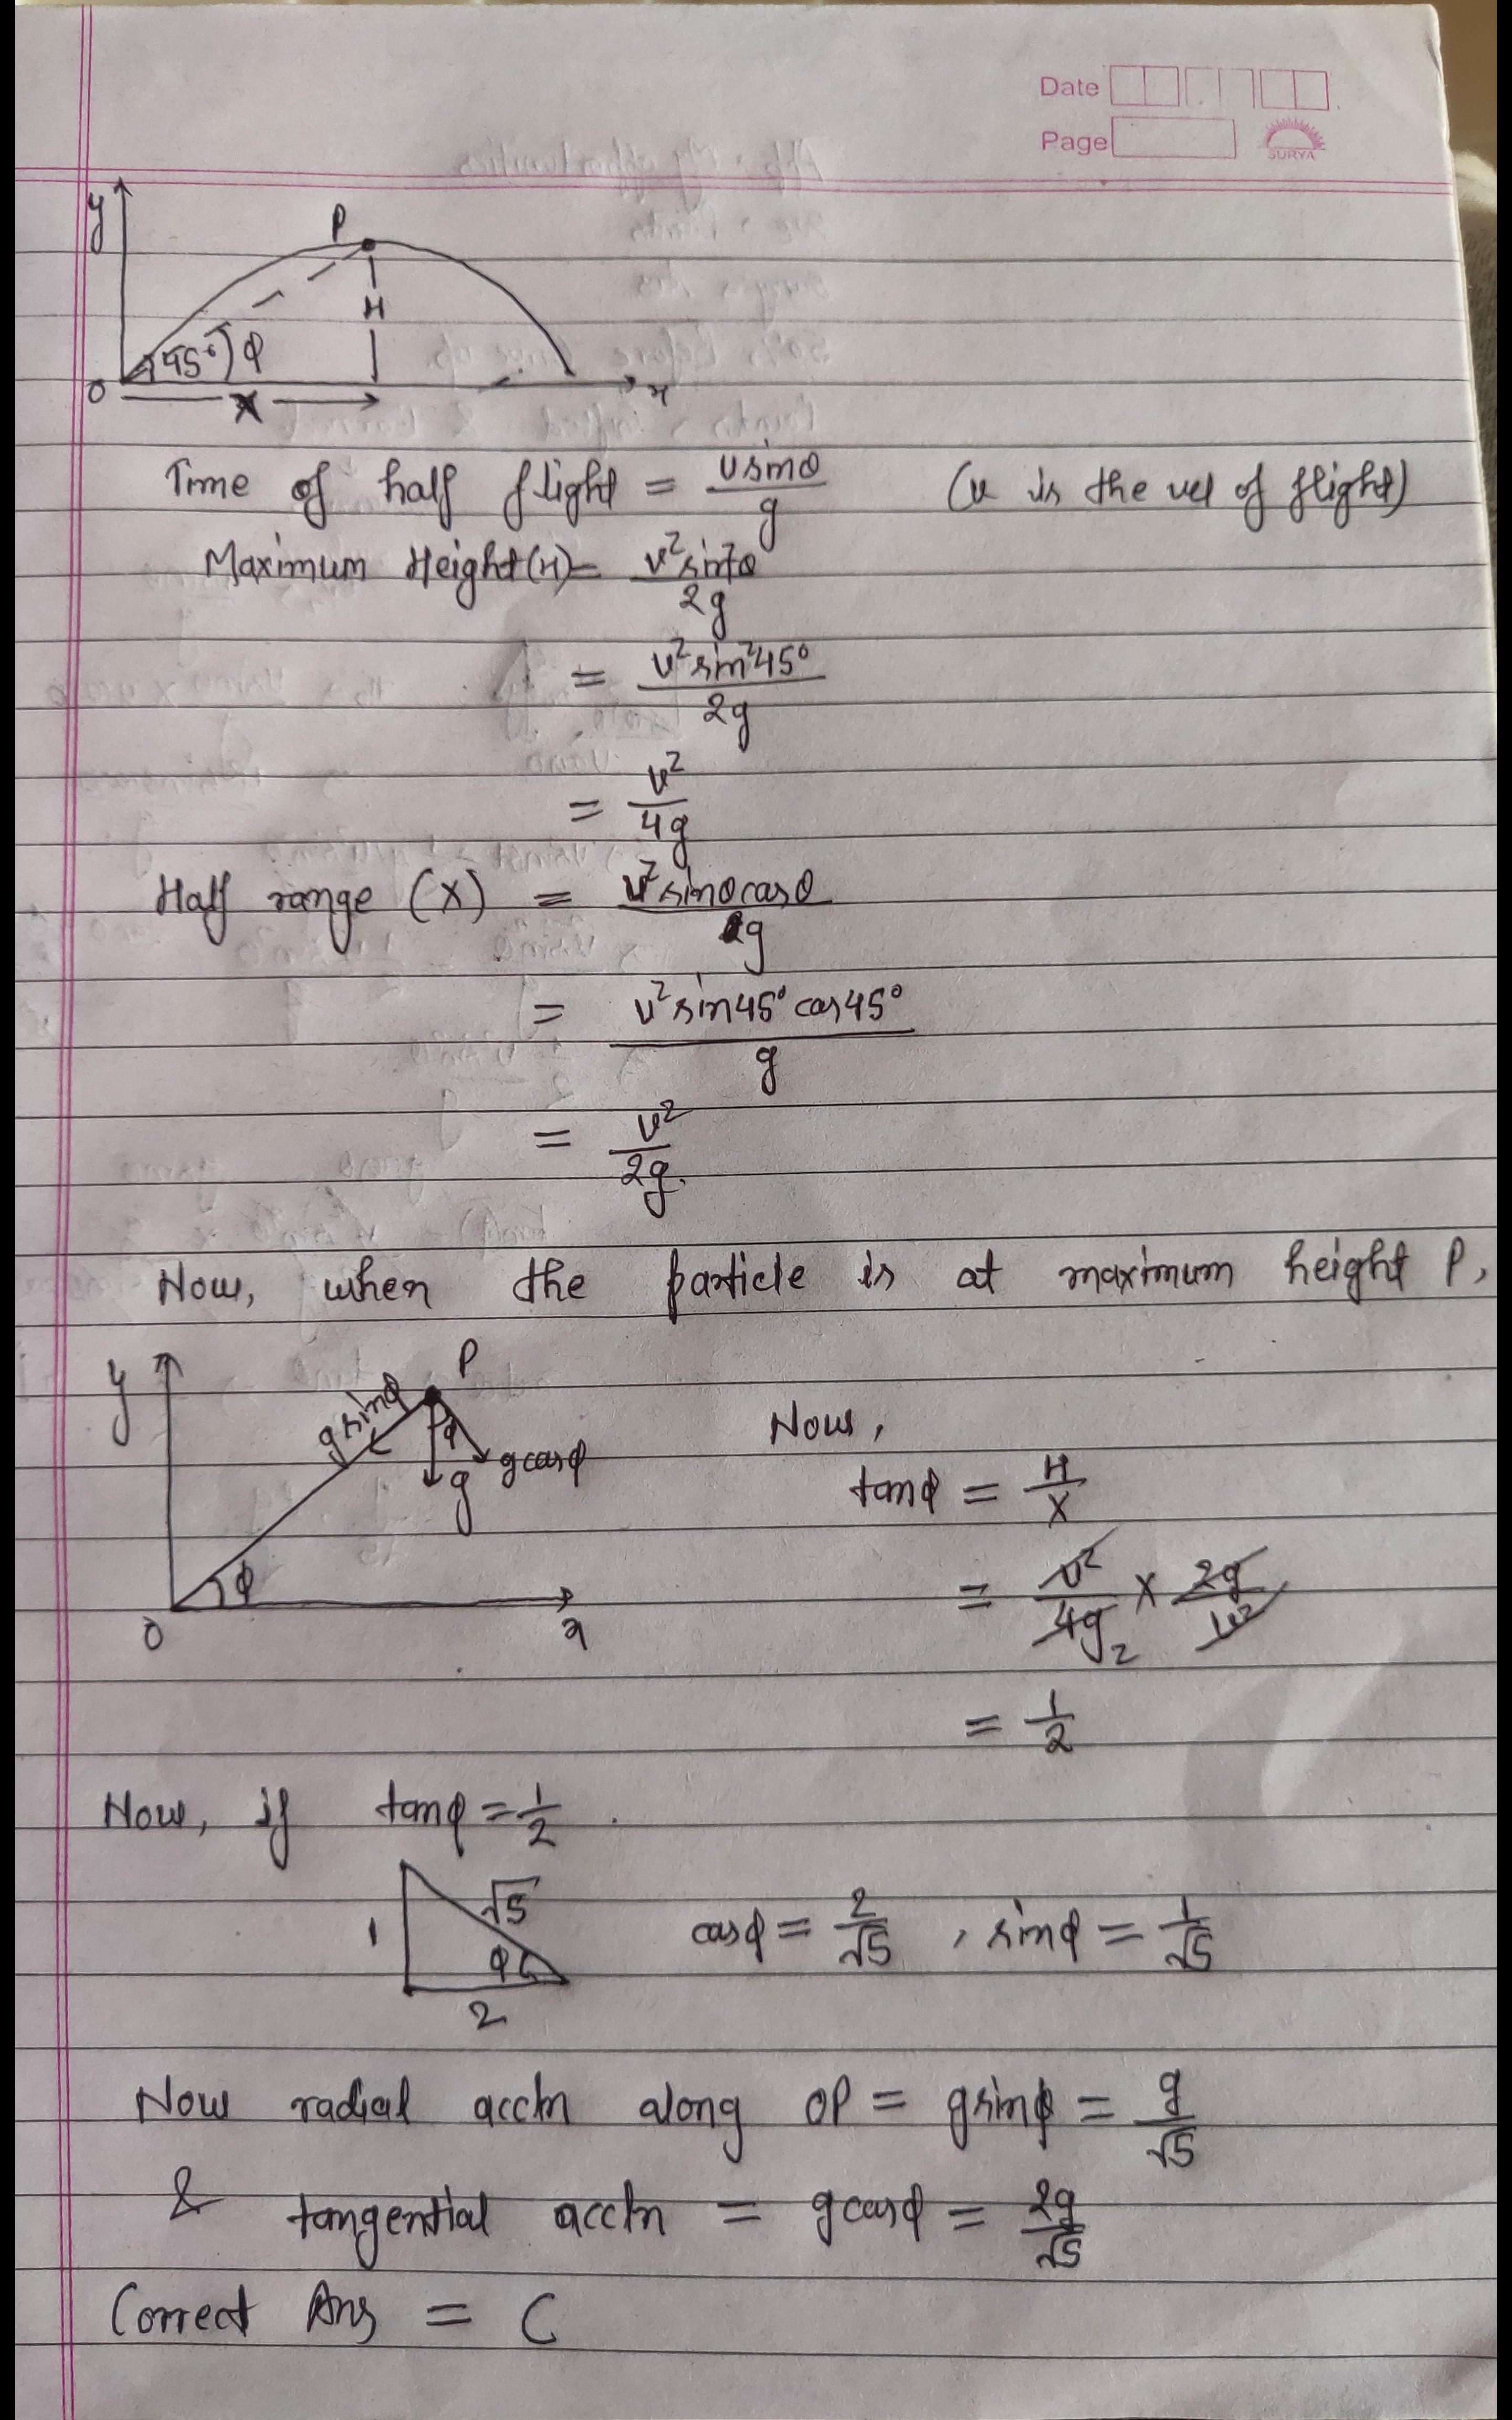 Date
Page
SURYA
y
P
H
45° φ
O
X
x
Time of half flight = usinθ/g (u is the vel of flight)
Maximum Height(H)= u²sin²θ/2g
= u²sin²45°/2g
= u²/4g
Half range (X) = u²sinθcosθ/g
= u²sin45°cos45°/g
= u²/2g.
Now, when the particle is at maximum height P,
y
P
gsinφ
φ
gcosφ
g
φ
O
x
Now,
tanφ = H/X
= u²/4g × 2g/u²
2
= 1/2
Now, if tanφ = 1/2.
1
√5
φ
2
cosφ = 2/√5 , sinφ = 1/√5
Now radial accln along OP = gsinφ = g/√5
& tangential accln = gcosφ = 2g/√5
Correct Ans = C